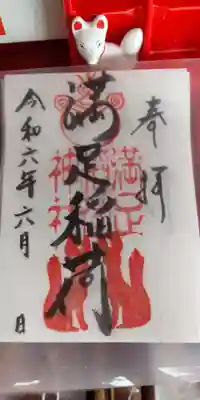 奉拝
満足稲荷
満足稲荷
神社
令和六年六月 日